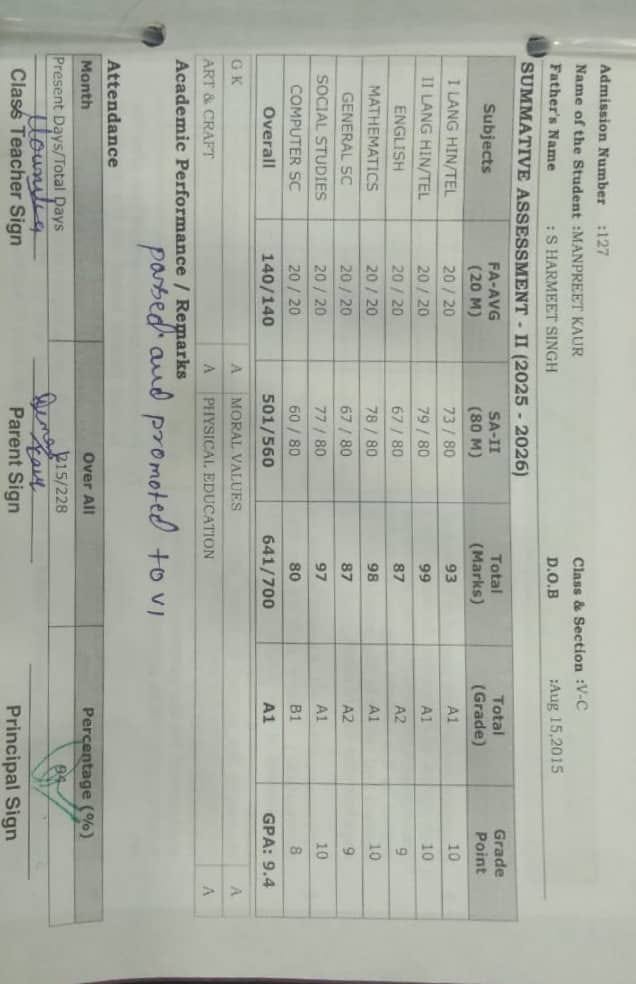 Admission Number :127
Name of the Student :MANPREET KAUR Class & Section :V-C
Father's Name : S HARMEET SINGH D.O.B :Aug 15,2015
SUMMATIVE ASSESSMENT - II (2025 - 2026)
Subjects FA-AVG (20 M) SA-II (80 M) Total (Marks) Total (Grade) Grade Point
I LANG HIN/TEL 20 / 20 73 / 80 93 A1 10
II LANG HIN/TEL 20 / 20 79 / 80 99 A1 10
ENGLISH 20 / 20 67 / 80 87 A2 9
MATHEMATICS 20 / 20 78 / 80 98 A1 10
GENERAL SC 20 / 20 67 / 80 87 A2 9
SOCIAL STUDIES 20 / 20 77 / 80 97 A1 10
COMPUTER SC 20 / 20 60 / 80 80 B1 8
Overall 140/140 501/560 641/700 A1 GPA: 9.4
G K A MORAL VALUES A
ART & CRAFT A PHYSICAL EDUCATION A
Academic Performance / Remarks
passed and promoted to VI
Attendance
Month Over All Percentage (%)
Present Days/Total Days 215/228 94
Class Teacher Sign Parent Sign Principal Sign